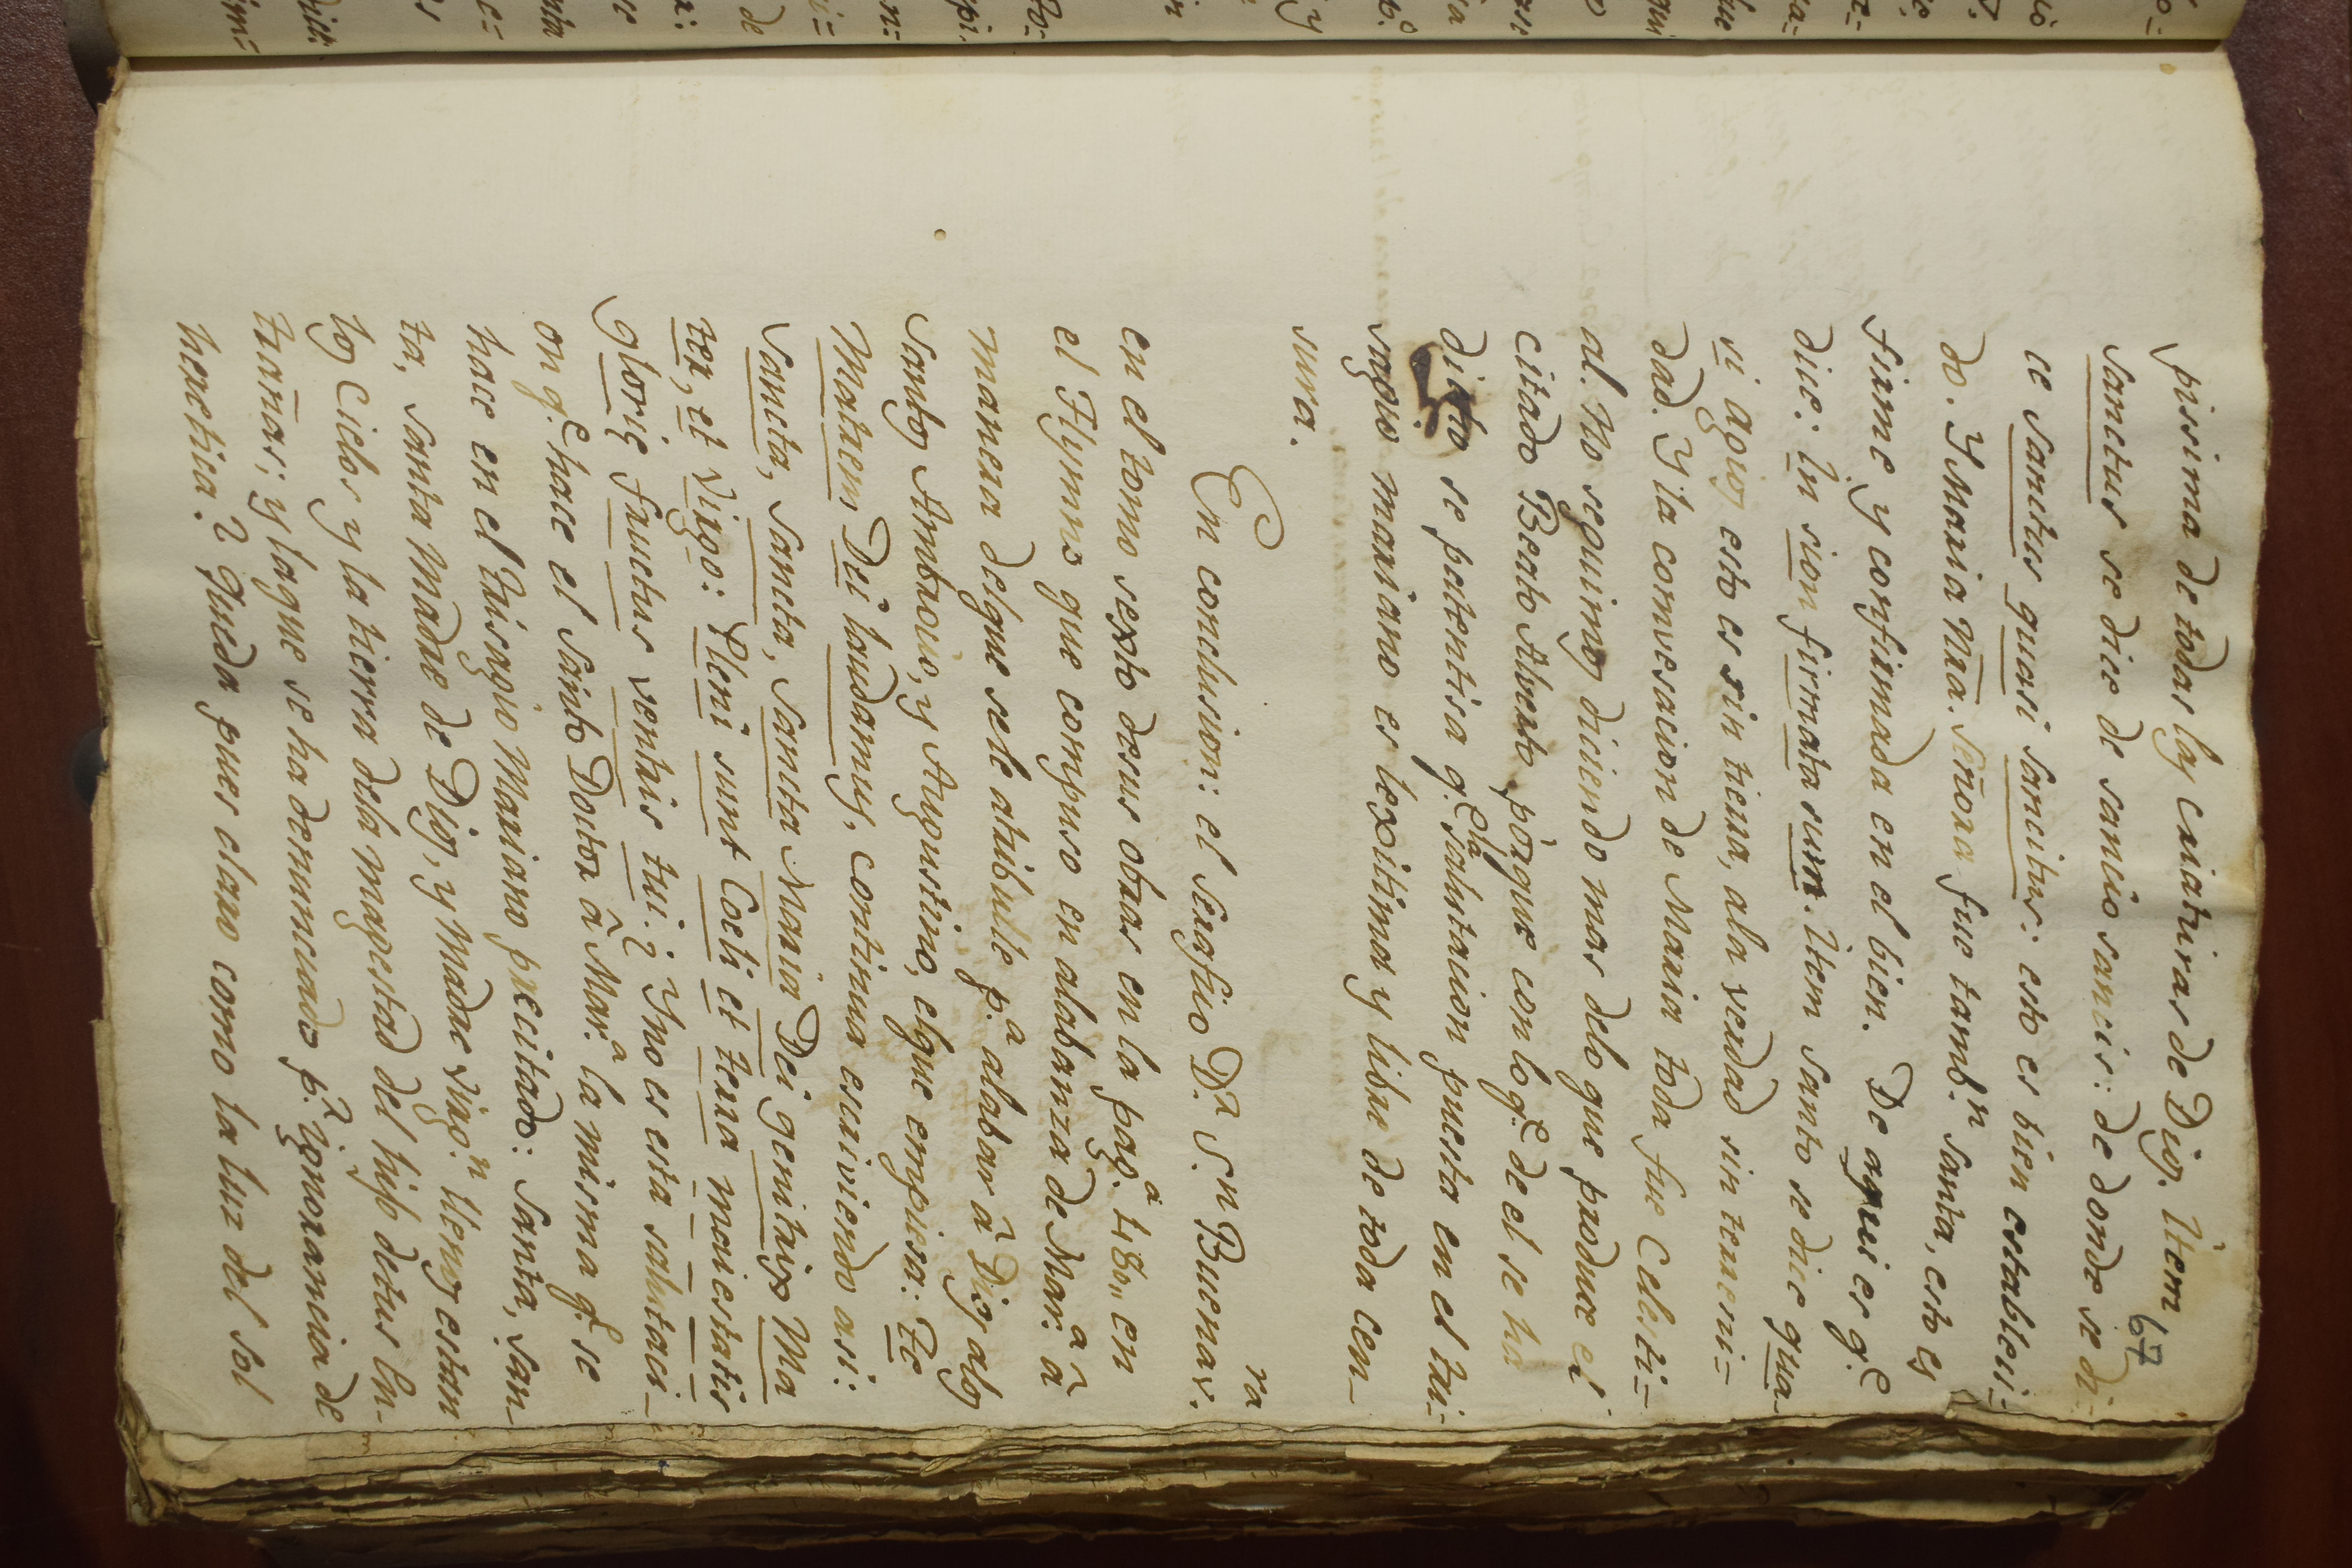 67
pissima de todas las criaturas de Dios. Item
Sanctus se dice de sancio sancis: de donde se di-
ce Sanctus quasi sancitus: esto es bien estableci-
do. Y Maria Nra. Señora fue tambn. Santa, esto es
firme y confirmada en el bien. De aqui es q.e
dice: In sion firmata sum. Item Santo se dice qua-
si agios esto es sin tierra, ala verdad sin terreni-
dad. Y la comvesacion de Maria toda fue Celesti=
al. No seguimos diciendo mas delo que produce el
citado Beato Alverto, porque con lo q.e de el se ha
dicho se patentisa q.e la salutacion puesta en el tri=
sagio mariano es lexitima y libre de toda cen-
sura.
En conclusion: el Serafico D.r S.n Buenav.ra
en el tomo sexto desus obras en la pag.a 480,, en
el Hymno que compuso en alabanza de Mar.a â
manera delque sele atribulle p.a alabar â Dios alos
Santos Ambrocio, y Agustino, elque empiesa: Te
Matrem Dei laudamus, continua escriviendo asi:
Sancta, Sancta, Sancta Maria Dei genitrix Ma
ter, et Virgo: Pleni sunt Coeli et terra magestatis
glorię fructus ventris tui. ¿Y no es esta salutaci-
on q.e hace el Santo Doctor â Mar.a la misma q.e se
hace en el Trisagio Mariano precitado: Santa, San-
ta, Santa Madre de Dios, y Madre Virg.n llenos estan
los Cielos y la tierra dela magestad del hijo detus En-
trañas; y laque se ha denunciado p.r ignorancia de
heretica? Queda pues claro como la luz del sol